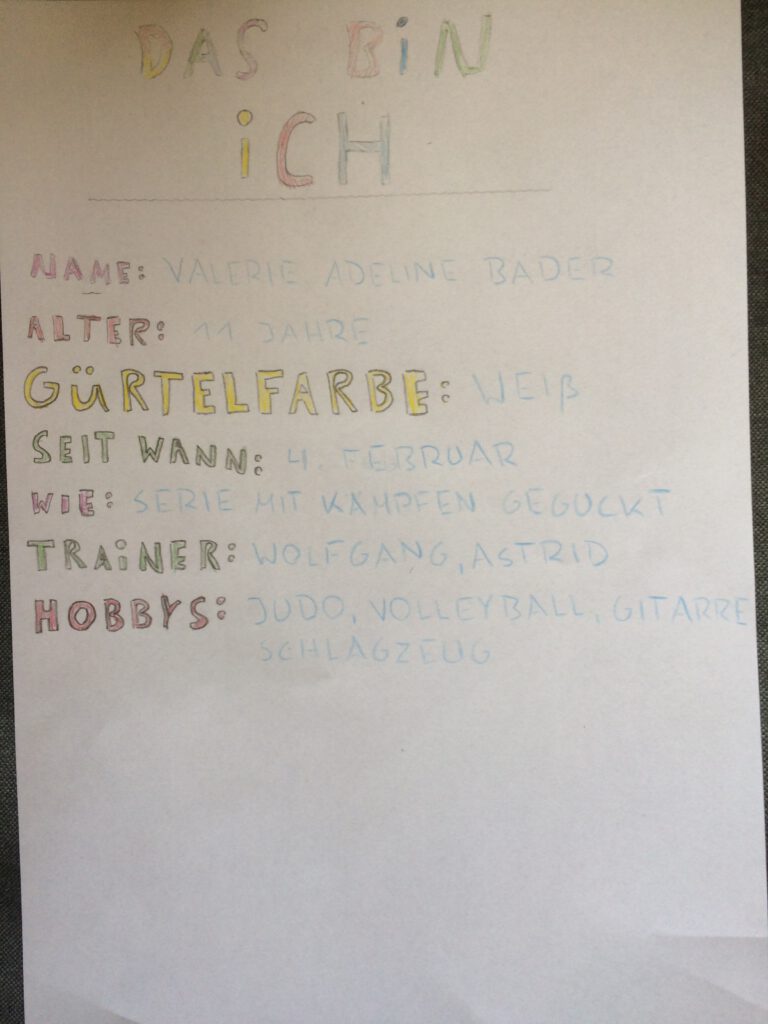 DAS BiN
iCH
NAME: VALERIE ADELINE BADER
ALTER: 11 JAHRE
GÜRTELFARBE: WEIß
SEIT WANN: 4. FEBRUAR
WIE: SERIE MIT KÄMPFEN GEGUCKT
TRAiNER: WOLFGANG, ASTRID
HOBBYS: JUDO, VOLLEYBALL, GITARRE
SCHLAGZEUG